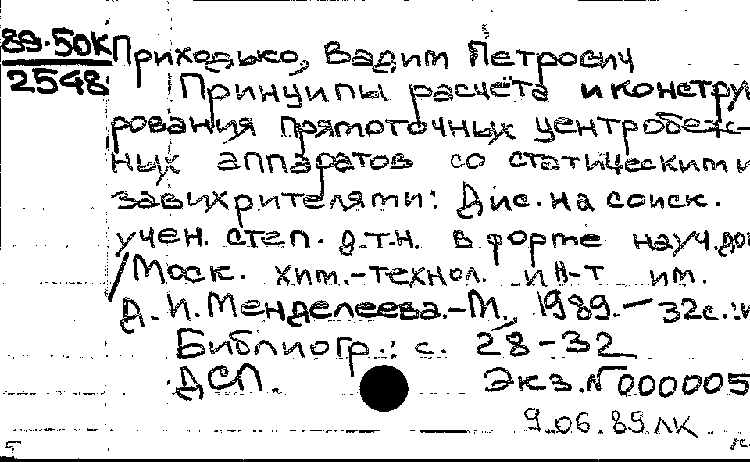 89-50К
2548
Приходько, Вадим Петрович
Принципы расчёта и констру
рования прямоточных центробеж-
ных аппаратов со статическими
завихрителями: Дис. на соиск.
учен. степ. д.т.н. в форме науч. док
/Моск. хим.-технол. ин-т им.
Д. И. Менделеева.-М., 1989. - 32с.:и
Библиогр.: с. 28-32
ДСП. Экз. № 000005
9.06.89 ЛК